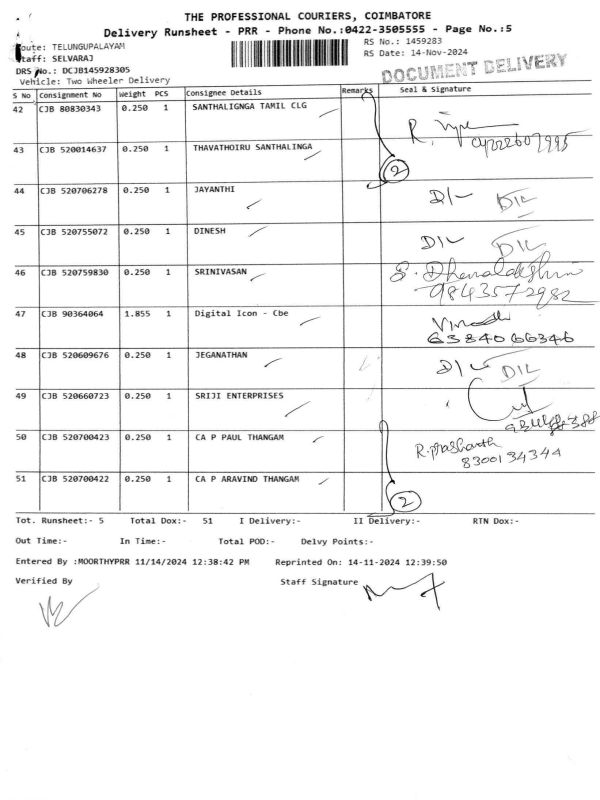 THE PROFESSIONAL COURIERS, COIMBATORE
Delivery Runsheet - PRR - Phone No.:0422-3505555 - Page No.:5
Route: TELUNGUPALAYAM
RS No.: 1459283
Staff: SELVARAJ
RS Date: 14-Nov-2024
DRS No.: DCJB145928305
DOCUMENT DELIVERY
Vehicle: Two Wheeler Delivery
S No Consignment No Weight PCS Consignee Details Remarks Seal & Signature
42 CJB 80830343 0.250 1 SANTHALIGNGA TAMIL CLG
43 CJB 520014637 0.250 1 THAVATHOIRU SANTHALINGA
2
44 CJB 520706278 0.250 1 JAYANTHI D/L D/L
45 CJB 520755072 0.250 1 DINESH D/L D/L
46 CJB 520759830 0.250 1 SRINIVASAN
9843572982
47 CJB 90364064 1.855 1 Digital Icon - Cbe
6384066346
48 CJB 520609676 0.250 1 JEGANATHAN D/L D/L
49 CJB 520660723 0.250 1 SRIJI ENTERPRISES
50 CJB 520700423 0.250 1 CA P PAUL THANGAM R.prashanth
8300134344
51 CJB 520700422 0.250 1 CA P ARAVIND THANGAM
2
Tot. Runsheet:- 5 Total Dox:- 51 I Delivery:- II Delivery:- RTN Dox:-
Out Time:- In Time:- Total POD:- Delvy Points:-
Entered By :MOORTHYPRR 11/14/2024 12:38:42 PM Reprinted On: 14-11-2024 12:39:50
Verified By Staff Signature